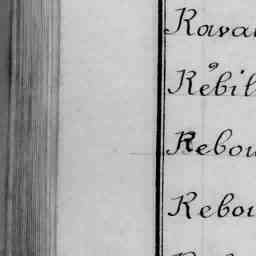 Rava
Rébil
Rebou
Rebou